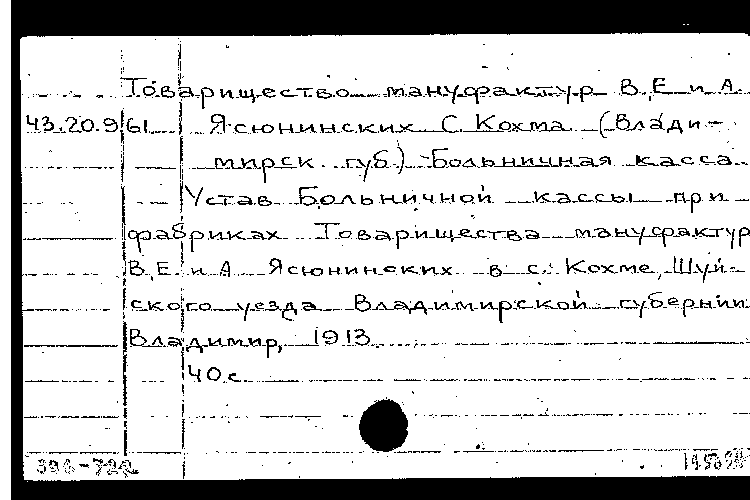 Товарищество мануфактур В, Е и А.
43.20.9/61 Ясюнинских. С. Кохма. (Влади-
мирск. губ.) Больничная касса.
Устав Больничной кассы при
фабриках Товарищества мануфактур
В, Е. и А Ясюнинских в с. Кохме, Шуй-
ского уезда Владимирской губернии
Владимир, 1913.
40 с.